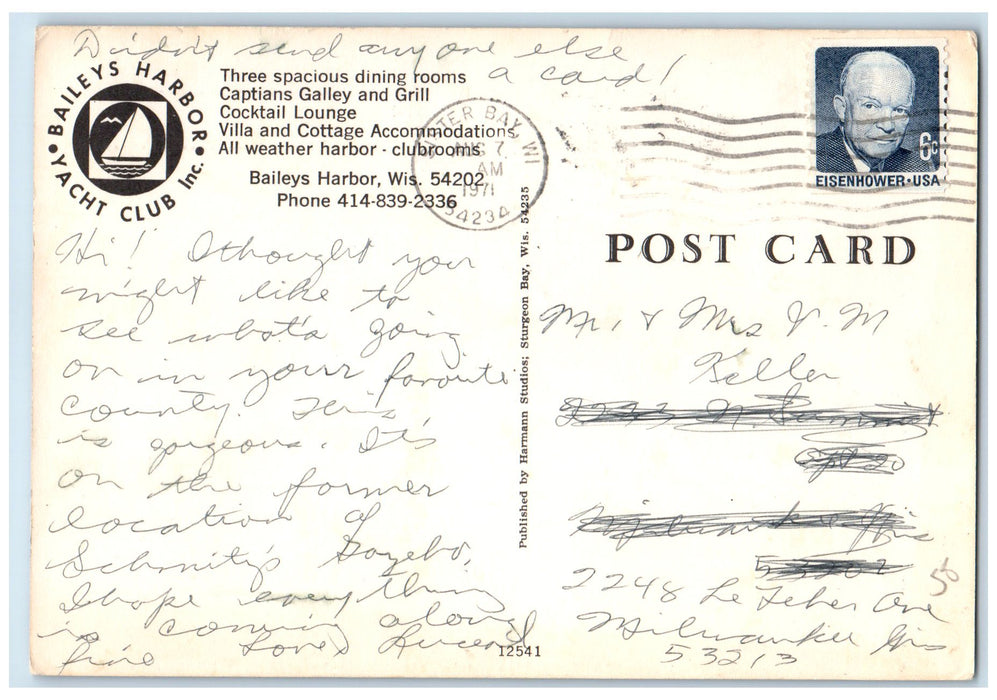 Didn't send anyone else
a card!
BAILEYS HARBOR
YACHT CLUB Inc.
Three spacious dining rooms
Captians Galley and Grill
Cocktail Lounge
Villa and Cottage Accommodations
All weather harbor - clubrooms
Baileys Harbor, Wis. 54202
Phone 414-839-2336
Hi! I thought you
might like to
see what's going
on in your favorite
county. This
is gorgeous. It's
on the former
location of
Schmitz's Gazebo,
I hope everything
is coming along
fine Love,
12541
Published by Harmann Studios; Sturgeon Bay, Wis. 54235
TER BAY, WI
AUG 7
AM
1971
54234
6c
EISENHOWER·USA
POST CARD
Mr. & Mrs V. M
Keller
N. Summit
Apt 20
Milwaukee Wis
53202
2248 Le Feber Ave
Milwaukee Wis
53213
50